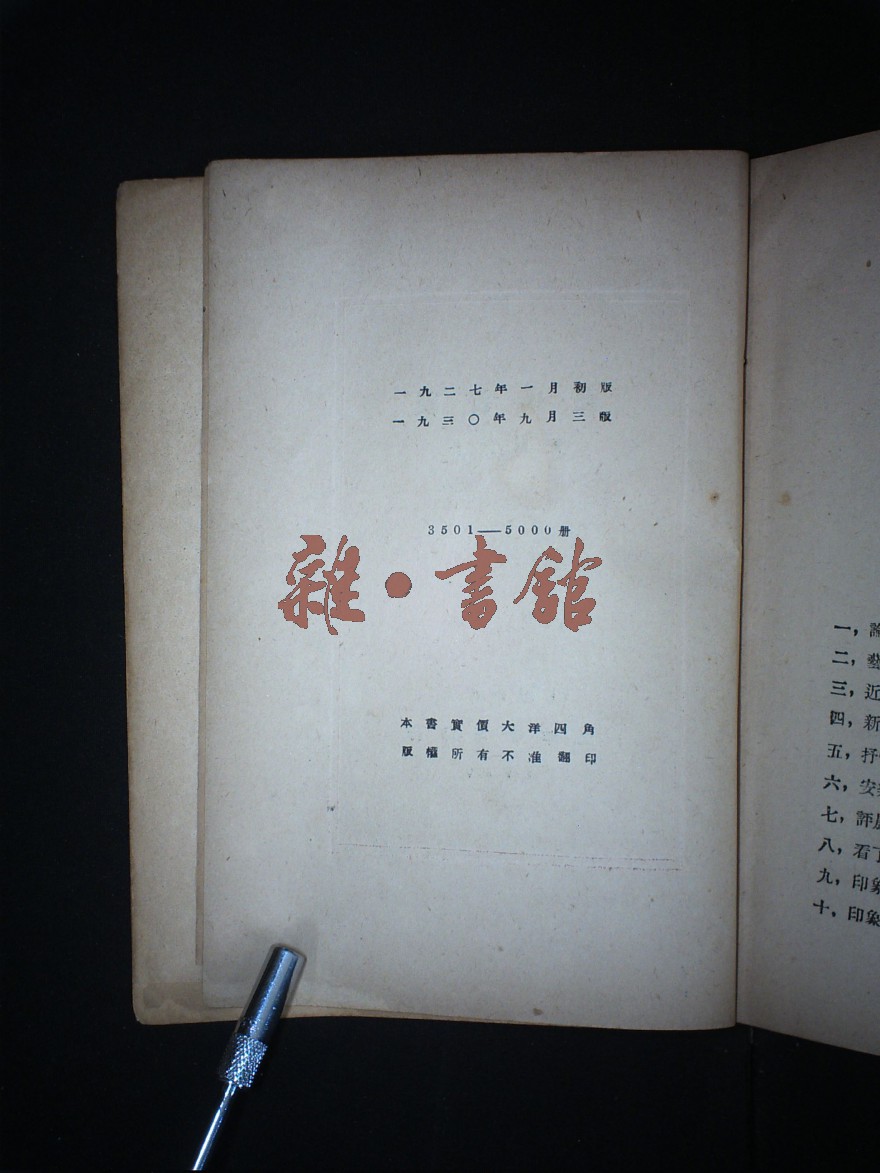 一九二七年一月初版
一九三〇年九月三版
3501——5000册
雜·書館
本書實價大洋四角
版權所有不准翻印
一，論
二，藝
三，近
四，新
五，抒
六，安
七，評
八，看了
九，印象
十，印象